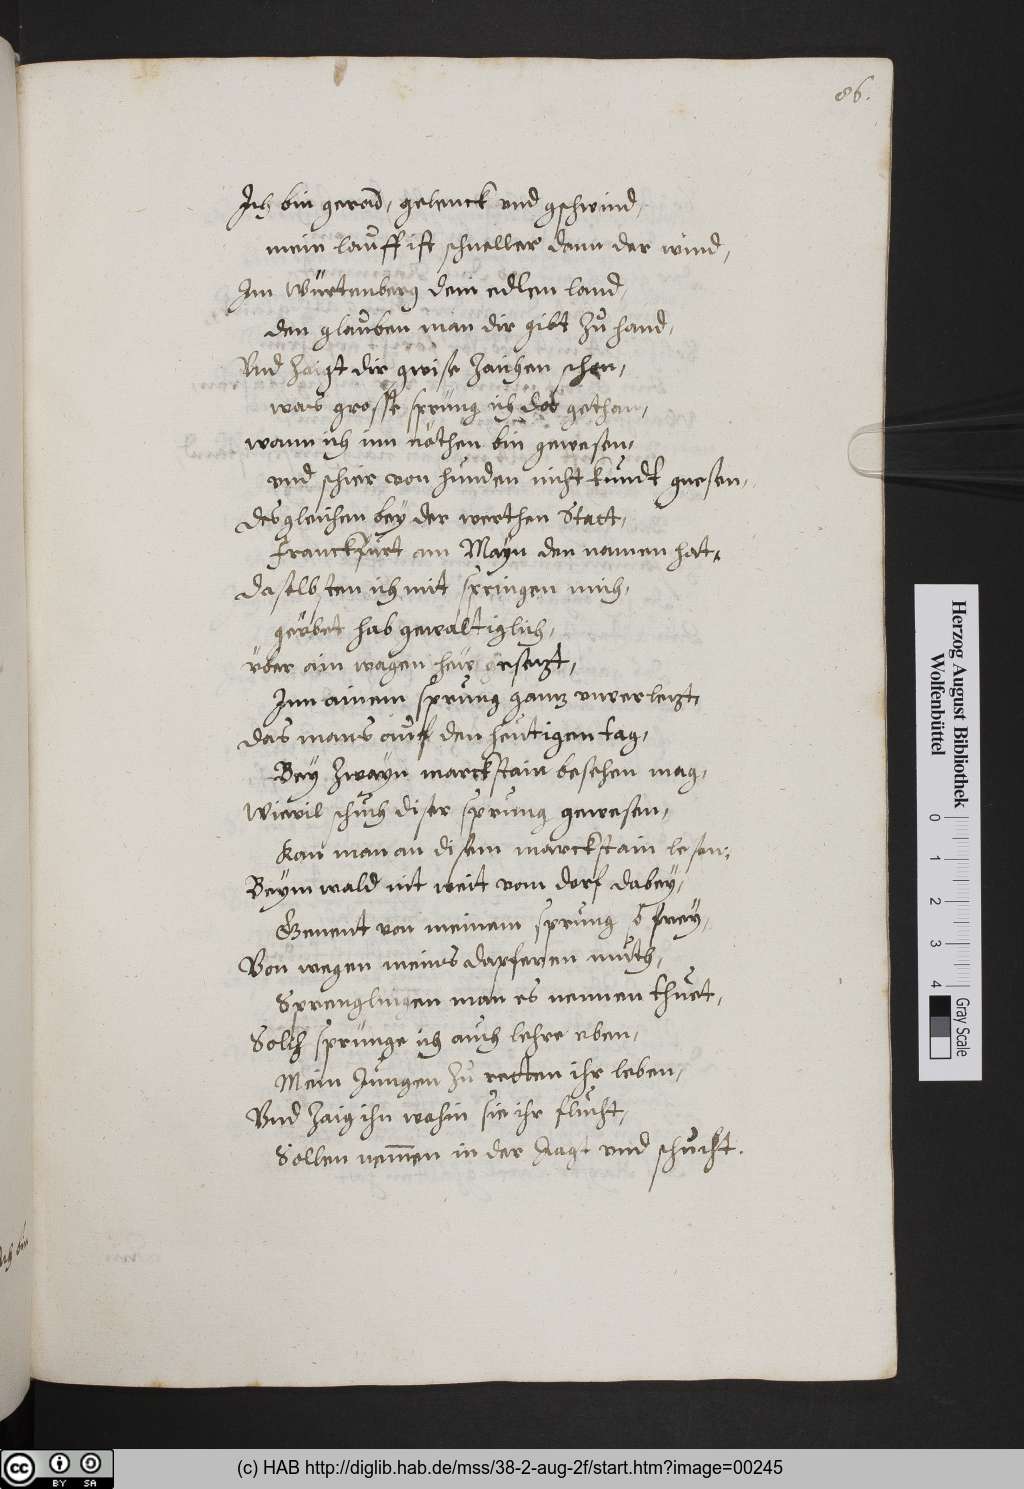 86.
Ich bin gerad, gelenck vnd gschwind,
mein lauff ist schneller dann der wind,
Im Würtenberg dem edlen land,
den glauben man dir gibt zu hand,
Vnd zaigt dir gwise zaichen schon,
was grosse sprüng ich do gethan,
wann ich inn nöthen bin gewesen,
vnd schier von hunden nicht kundt gnesen,
desgleichen bey der werthen Statt,
Franckfurt am Mayn den namen hat,
daselbsten ich mit springen mich,
geübet hab gewaltiglich,
über ain wagen heüw gesetzt,
Inn ainem sprung gantz vnverletzt
das mans auf den heutigen tag,
Bey zwayn marckstain besehen mag,
Wievil schuch diser sprung gewesen,
Kan man an disem marckstain lesen,
Beym wald nit weit vom dorf dabey,
Genent von meinem sprung so frey,
Von wegen meins dapferen muth,
Sprenglingen man es nennen thuet,
Solch sprünge ich auch lehre eben,
Mein Jungen zu retten ihr leben,
Vnd zaig ihn wohin sie ihr flucht,
Sollen nemen in der Jagt vnd schucht.
Herzog August Bibliothek
Wolfenbüttel
0 1 2 3 4
Gray Scale
(c) HAB http://diglib.hab.de/mss/38-2-aug-2f/start.htm?image=00245
cc BY SA